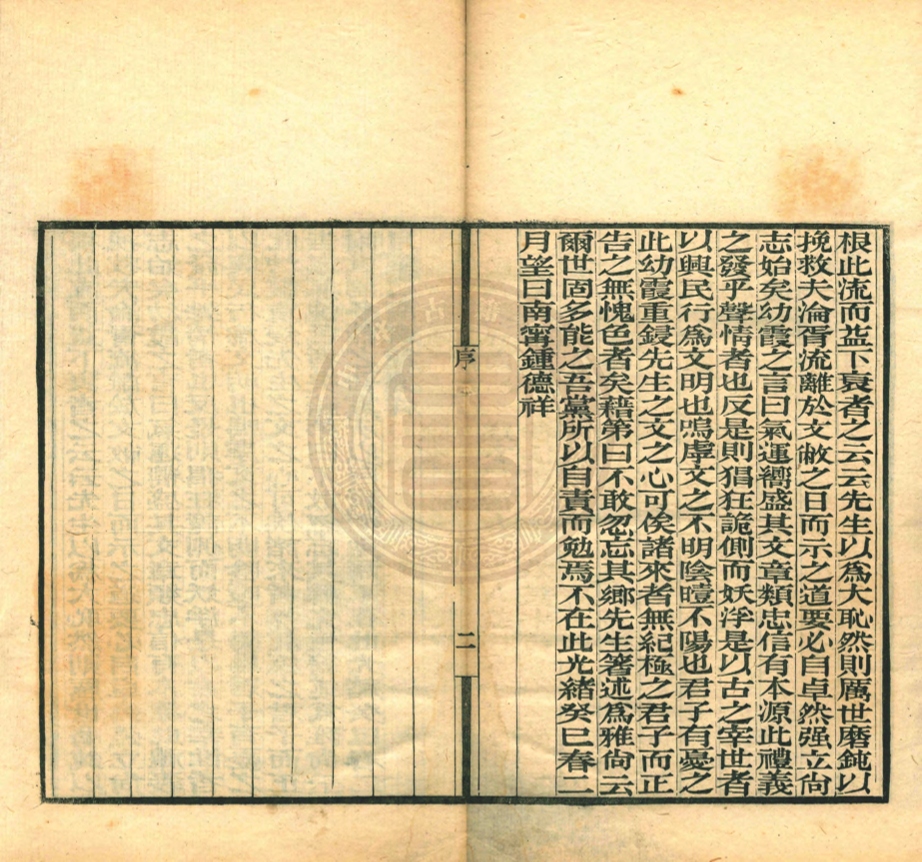 根此流而葢下哀者之云云先生以爲大恥然則厲世磨鈍以
挽救夫淪胥流離於文敝之日而示之道要必自卓然强立尙
志始矣幼霞之言曰氣運嚮盛其文章類忠信有本源此禮義
之發乎聲情者也反是則猖狂詭側而妖浮是以古之宰世者
以興民行爲文明也嗚虖文之不明陰曀不陽也君子有憂之
此幼霞重鋟先生之文之心可俟諸來者無紀極之君子而正
告之無愧色者矣藉第曰不敢忽忘其鄉先生箸述爲雅尙云
爾世固多能之吾黨所以自責而勉焉不在此光緒癸巳春二
月望日南甯鍾德祥
序
二